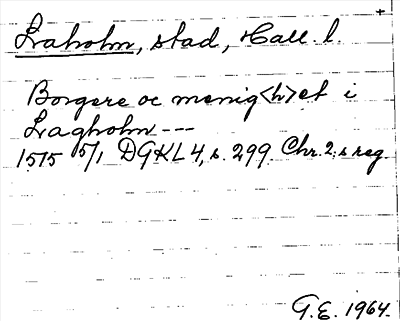 +
Laholm, stad, Hall. l.
Borgere oc menig<h>et i
Lagholm ---
1515 5/1 DGKL 4, s. 299 Chr. 2:s reg.
G.E. 1964.